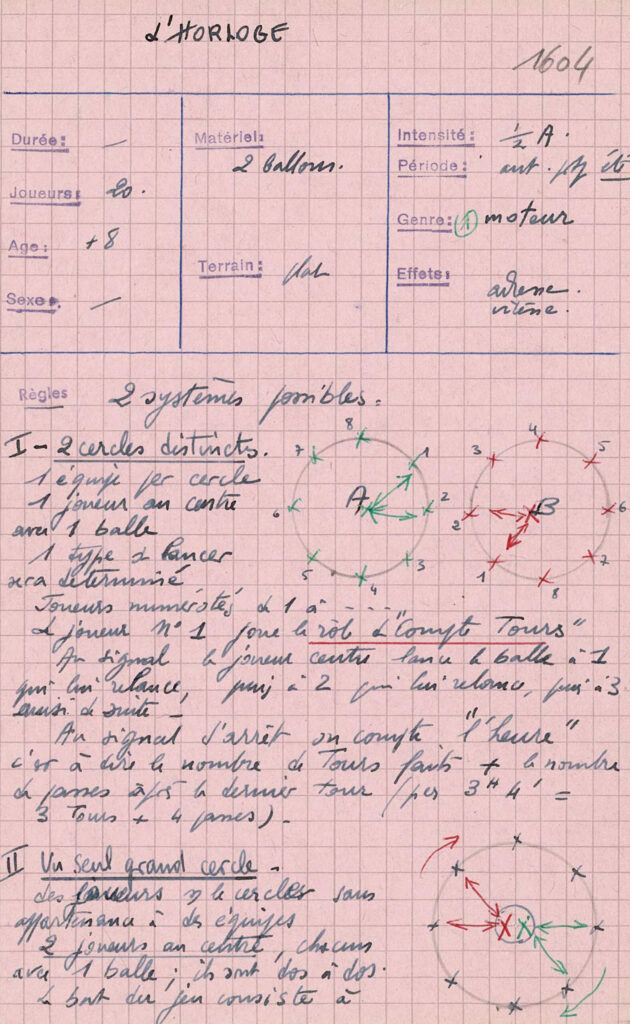 d'HORLOGE
1604
Durée: —
Joueurs: 20.
Age: +8
Sexe: —
Matériel:
2 ballons.
Terrain: plat
Intensité: ½ A.
Période: aut. ptps été
Genre: 1 moteur
Effets: adresse.
vitesse.
Règles 2 systèmes possibles.
I - 2 cercles distincts.
1 équipe par cercle
1 joueur au centre
avec 1 balle
1 type de lancer
sera déterminé
Joueurs numérotés de 1 à ----
Le joueur N° 1 joue le rôle de "Compte Tours"
Au signal le joueur centre lance la balle à 1
qui lui relance, puis à 2 qui lui relance, puis à 3
ainsi de suite -
Au signal d'arrêt on compte "l'heure"
c'est à dire le nombre de Tours faits + le nombre
de passes après le dernier tour (par 3H 4' =
3 Tours + 4 passes).
8
7 1
A
6 2
5 3
4
4
3 5
B
2 6
1 7
8
II Un seul grand cercle -
des joueurs le cercle sans
appartenance à des équipes
2 joueurs au centre, chacun
avec 1 balle ; ils sont dos à dos.
Le but du jeu consiste à